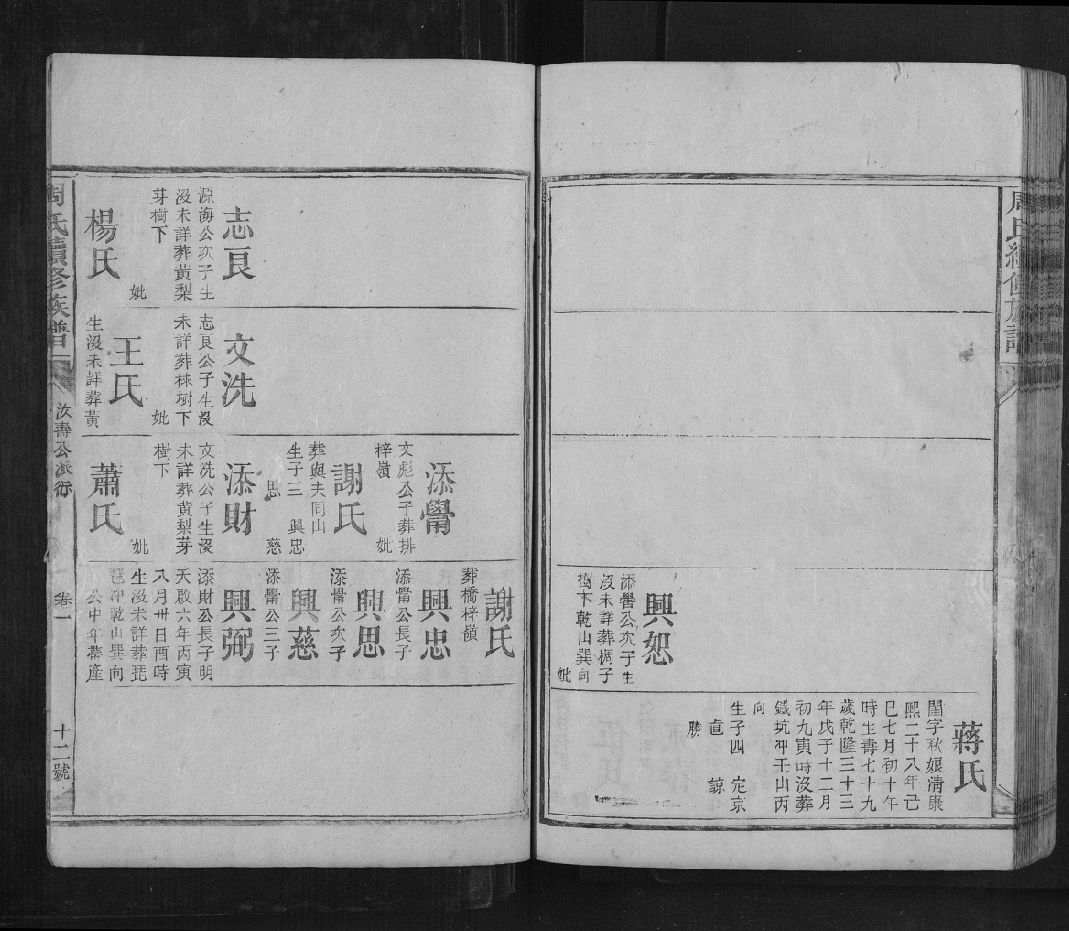 周氏續修族譜
蔣氏
閨字秋娘清康
熙二十八年己
巳七月初十午
時生壽七十九
歲乾隆三十三
年戊子十二月
初九寅時沒葬
錢坑冲壬山丙
向
生子四 定京
直 諒
勝
興恕
添譽公次子生
沒未詳葬楓子
樹下乾山巽向
妣
志良
源海公次子生
沒未詳葬黃梨
芽樹下
妣
楊氏
文洗
志良公子生沒
未詳葬楝樹下
妣
王氏
生沒未詳葬黃
添譽
文彪公子葬排
梓嶺
妣
謝氏
葬與夫同山
生子三 興忠
思 慈
添財
文洗公子生沒
未詳葬黃梨芽
樹下
妣
蕭氏
謝氏
葬橋梓嶺
興忠
添譽公長子
興思
添譽公次子
興慈
添譽公三子
興弼
添財公長子明
天啟六年丙寅
八月卅日酉時
生沒未詳葬琵
琶冲乾山巽向
公中年舊產
周氏續修族譜
汝壽公派衍
卷一
十二號